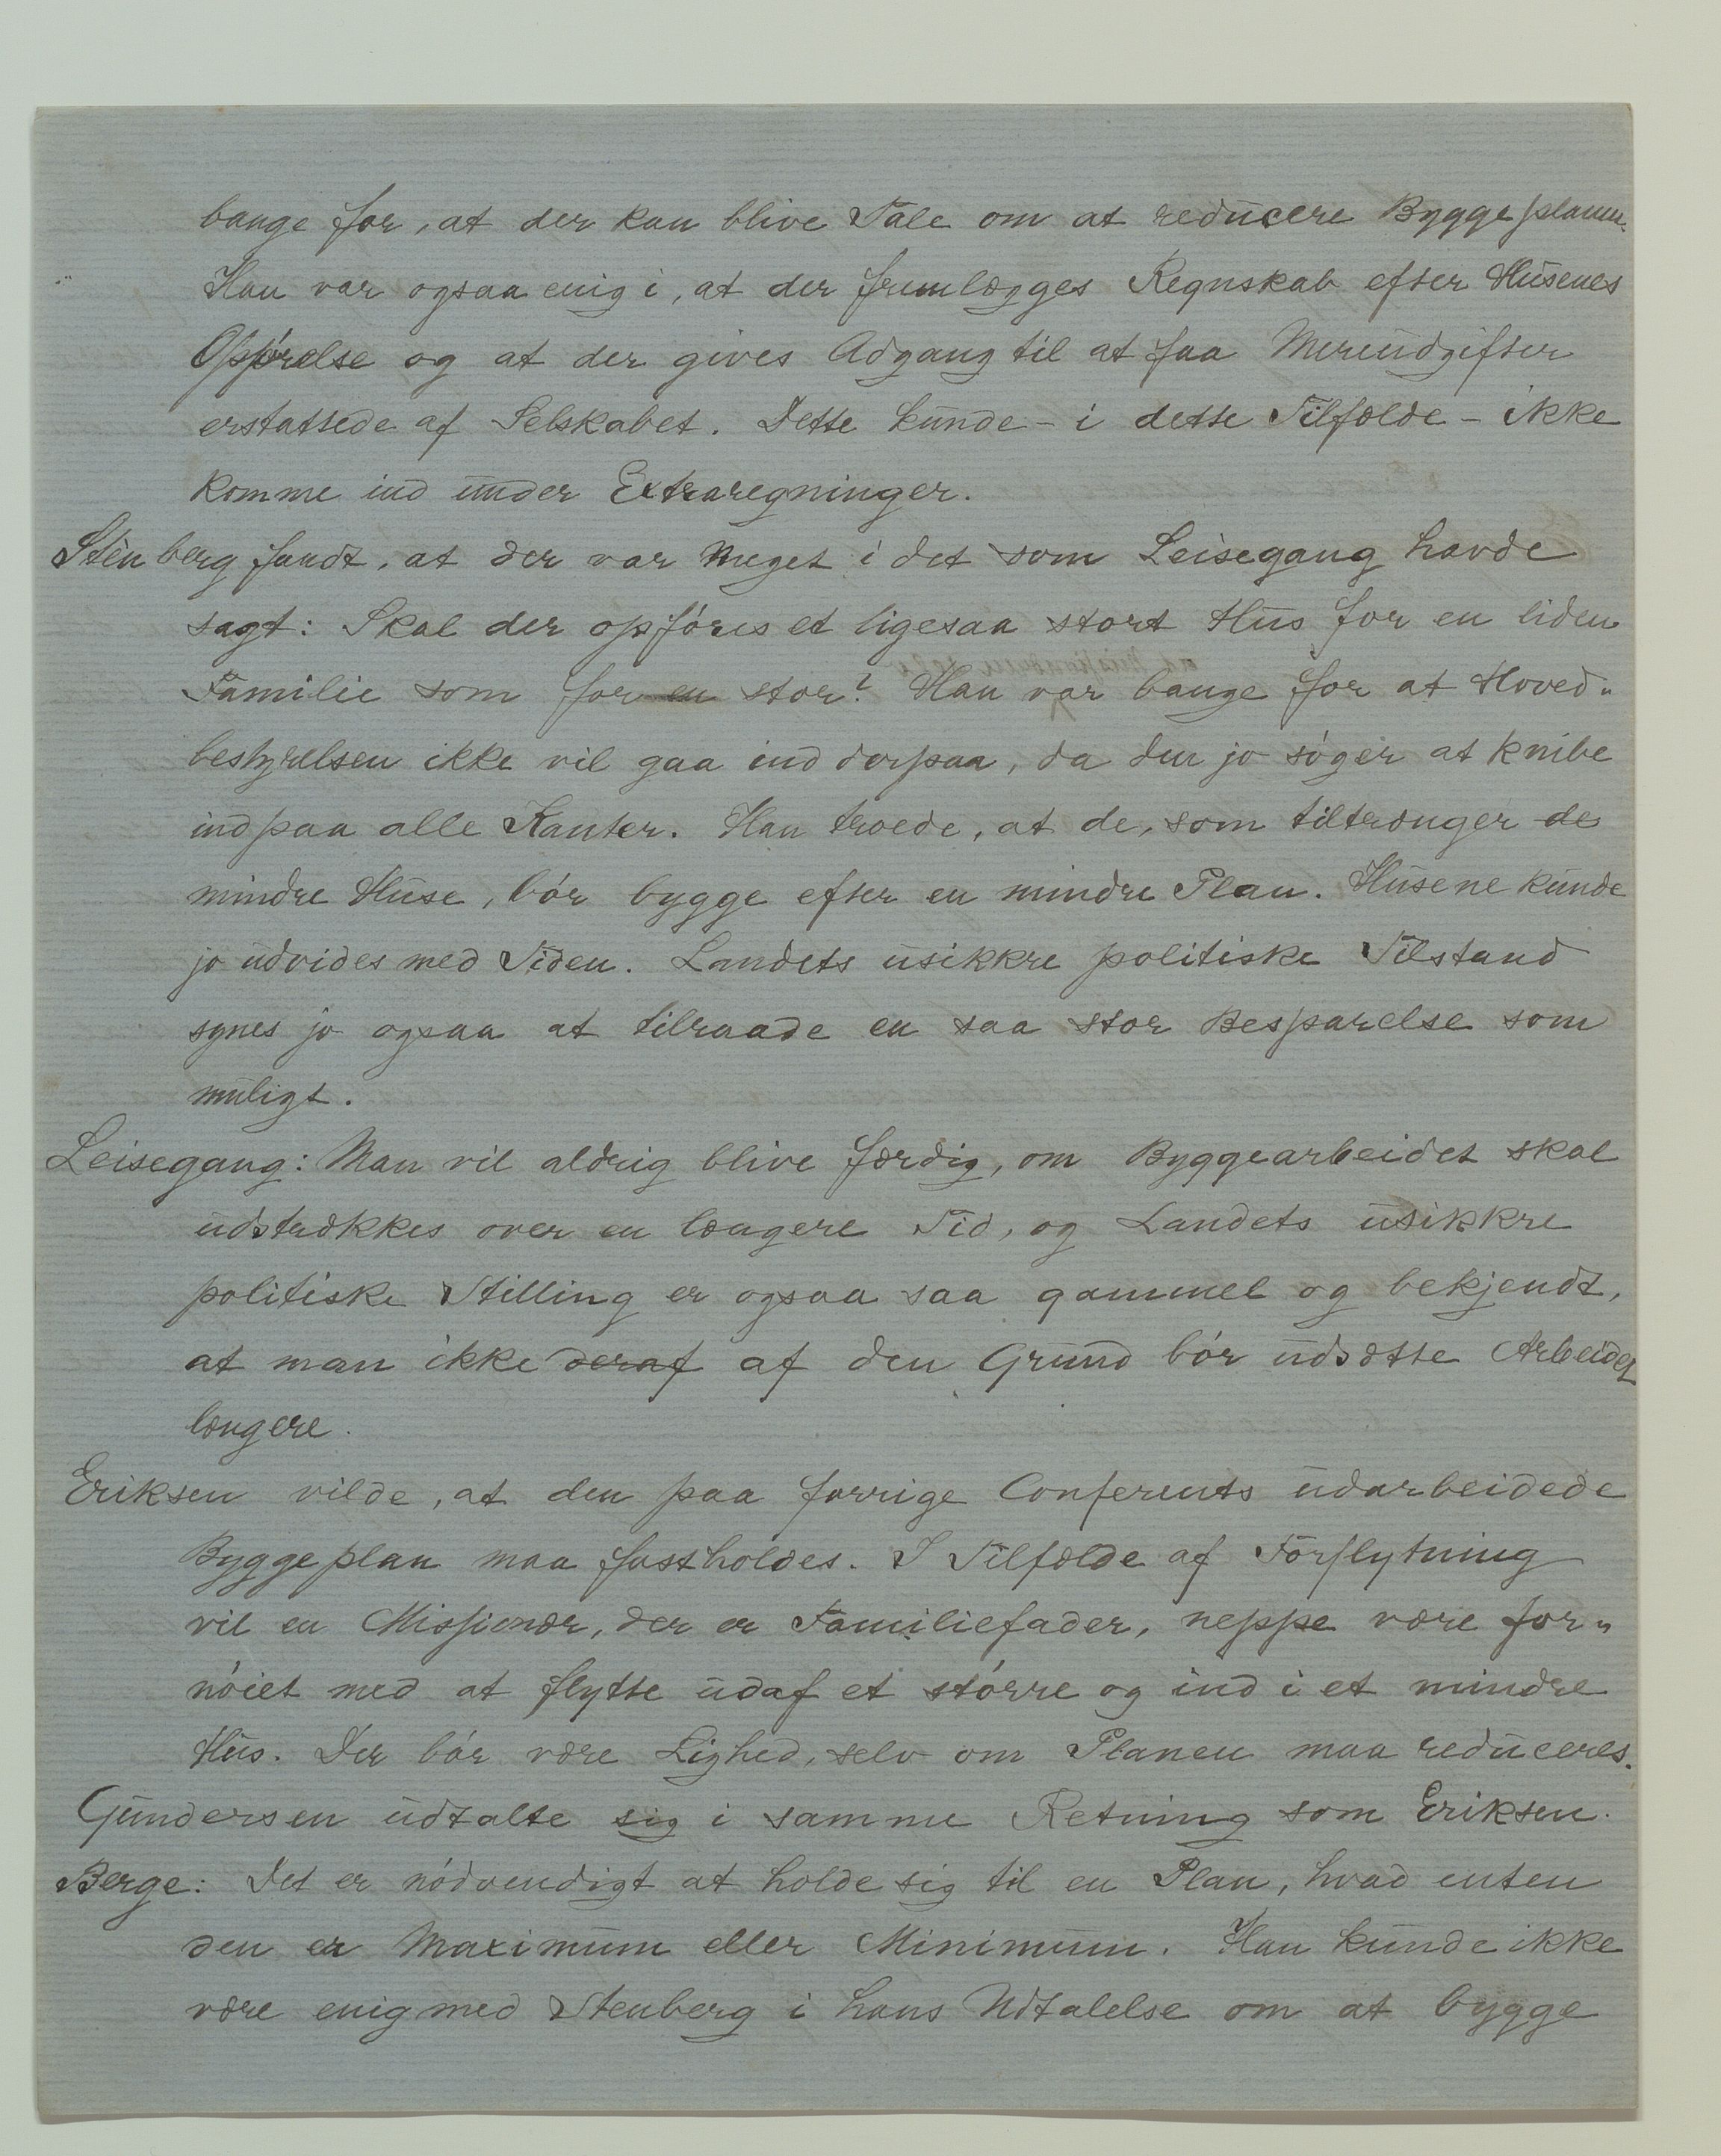 bange for, at der kan blive Tale om at reducere Byggeplanen.
Han var ogsaa enig i, at der fremlægges Regnskab efter Husenes
Opførelse og at der gives Adgang til at faa Merudgifter
erstattede af Selskabet. Dette kunde – i dette Tilfælde – ikke
komme ind under Extraregninger.
Stenberg fandt, at der var meget i det som Leisegang havde
sagt: Skal der opføres et ligesaa stort Hus for en liden
Familie som for en stor? Han var bange for at Hoved-
bestyrelsen ikke vil gaa ind derpaa, da den jo søger at knibe
ind paa alle Kanter. Han troede, at de, som tiltrænger de
mindre Huse, bør bygge efter en mindre Plan. Husene kunde
jo udvides med Tiden. Landets usikkre politiske Tilstand
synes jo ogsaa at tilraade en saa stor Besparelse som
muligt.
Leisegang: Man vil aldrig blive færdig, om Byggearbeidet skal
udstrækkes over en længere Tid, og Landets usikkre
politiske Stilling er ogsaa saa gammel og bekjendt,
at man ikke deraf af den Grund bør udsætte Arbeidet
længere.
Eriksen vilde, at den paa forrige Conferents udarbeidede
Byggeplan maa fastholdes. I Tilfælde af Forflytning
vil en Missionær, der er Familiefader, neppe være for-
nøiet med at flytte ud af et større og ind i et mindre
Hus. Der bør være Lighed, selv om Planen maa reduceres.
Gundersen udtalte sig i samme Retning som Eriksen.
Berge: Det er nødvendigt at holde sig til en Plan, hvad enten
den er Maximum eller Minimum. Han kunde ikke
være enig med Stenberg i hans Udtalelse om at bygge